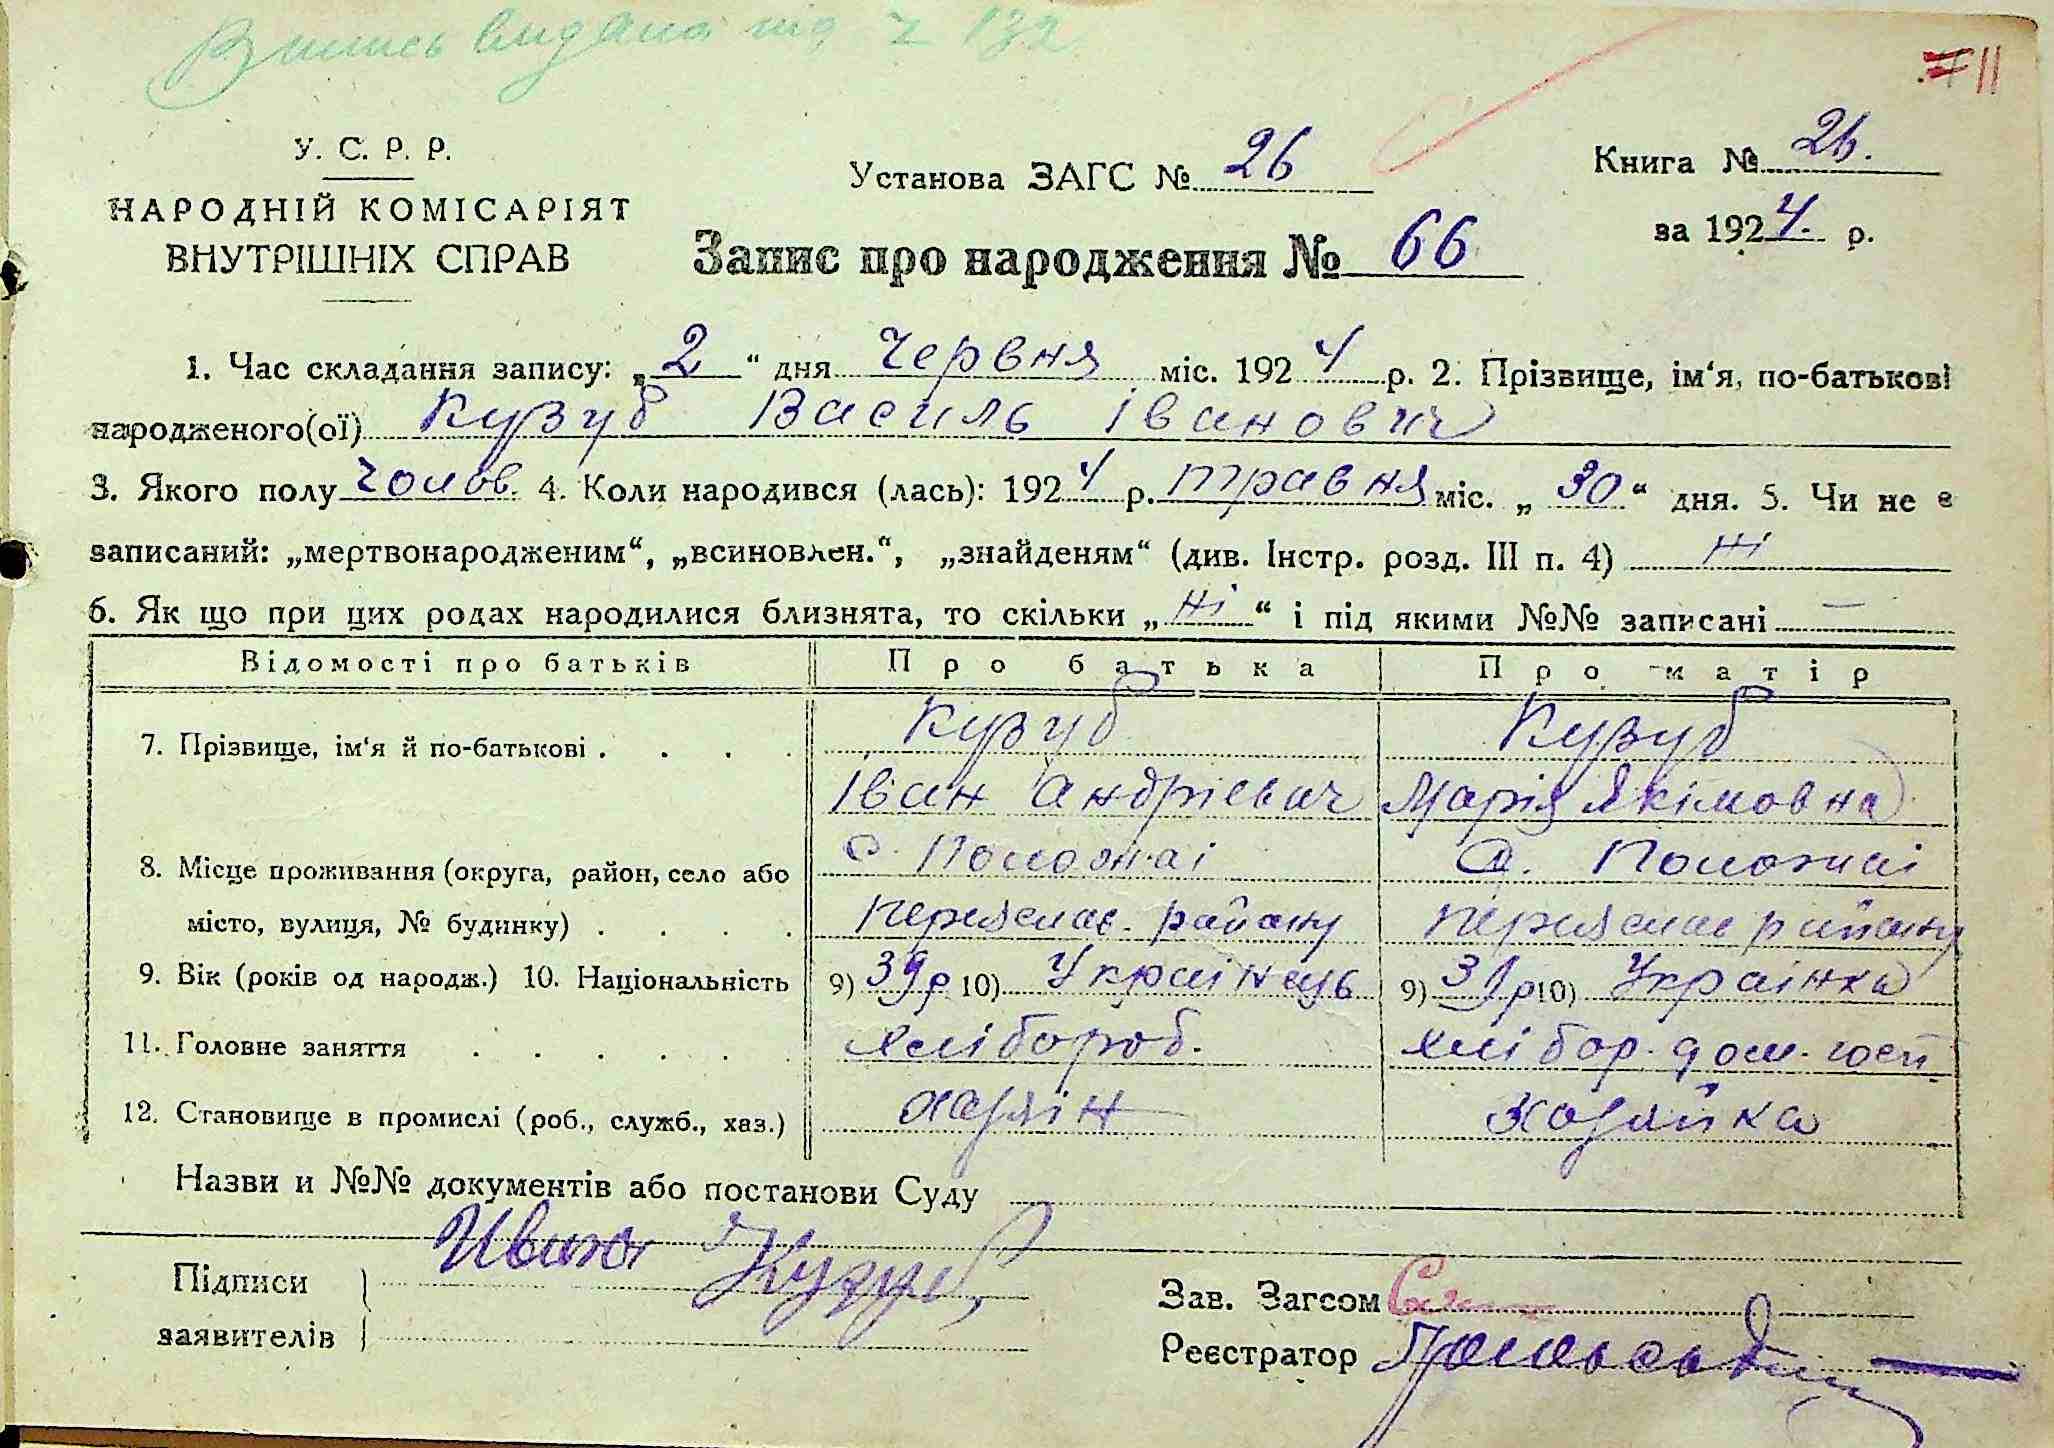 Випись видана під ч 132
11
У. С. Р. Р.
НАРОДНІЙ КОМІСАРІЯТ
ВНУТРІШНІХ СПРАВ
Установа ЗАГС № 26
Книга № 26.
за 1924. р.
Запис про народження № 66
1. Час складання запису: „2“ дня червня міс. 1924 р. 2. Прізвище, ім‘я, по-батькові
народженого(ої) Кузуб Василь Іванович
3. Якого полу чолов. 4. Коли народився (лась): 1924 р. травня міс. „30“ дня. 5. Чи не є
записаний: „мертвонародженим“, „всиновлен.“, „знайденям“ (див. Інстр. розд. III п. 4) Ні
6. Як що при цих родах народилися близнята, то скільки „Ні“ і під якими №№ записані —
Відомості про батьків Про батька Про матір
7. Прізвище, ім‘я й по-батькові . . . . Кузуб Кузуб
Іван Андрієвич Марія Якімовна
8. Місце проживання (округа, район, село або с. Положаї с. Положаї
місто, вулиця, № будинку) . . . . Переяслав. району Переяслав району
9. Вік (років од народж.) 10. Національність 9) 39 р 10) Українець 9) 31 р 10) Українка
11. Головне заняття . . . . . . хлібороб. хлібор. дом. госп.
12. Становище в промислі (роб., служб., хаз.) хазяін хазяйка
Назви и №№ документів або постанови Суду
Підписи Иван Кузуб
заявителів
Зав. Загсом
Реєстратор